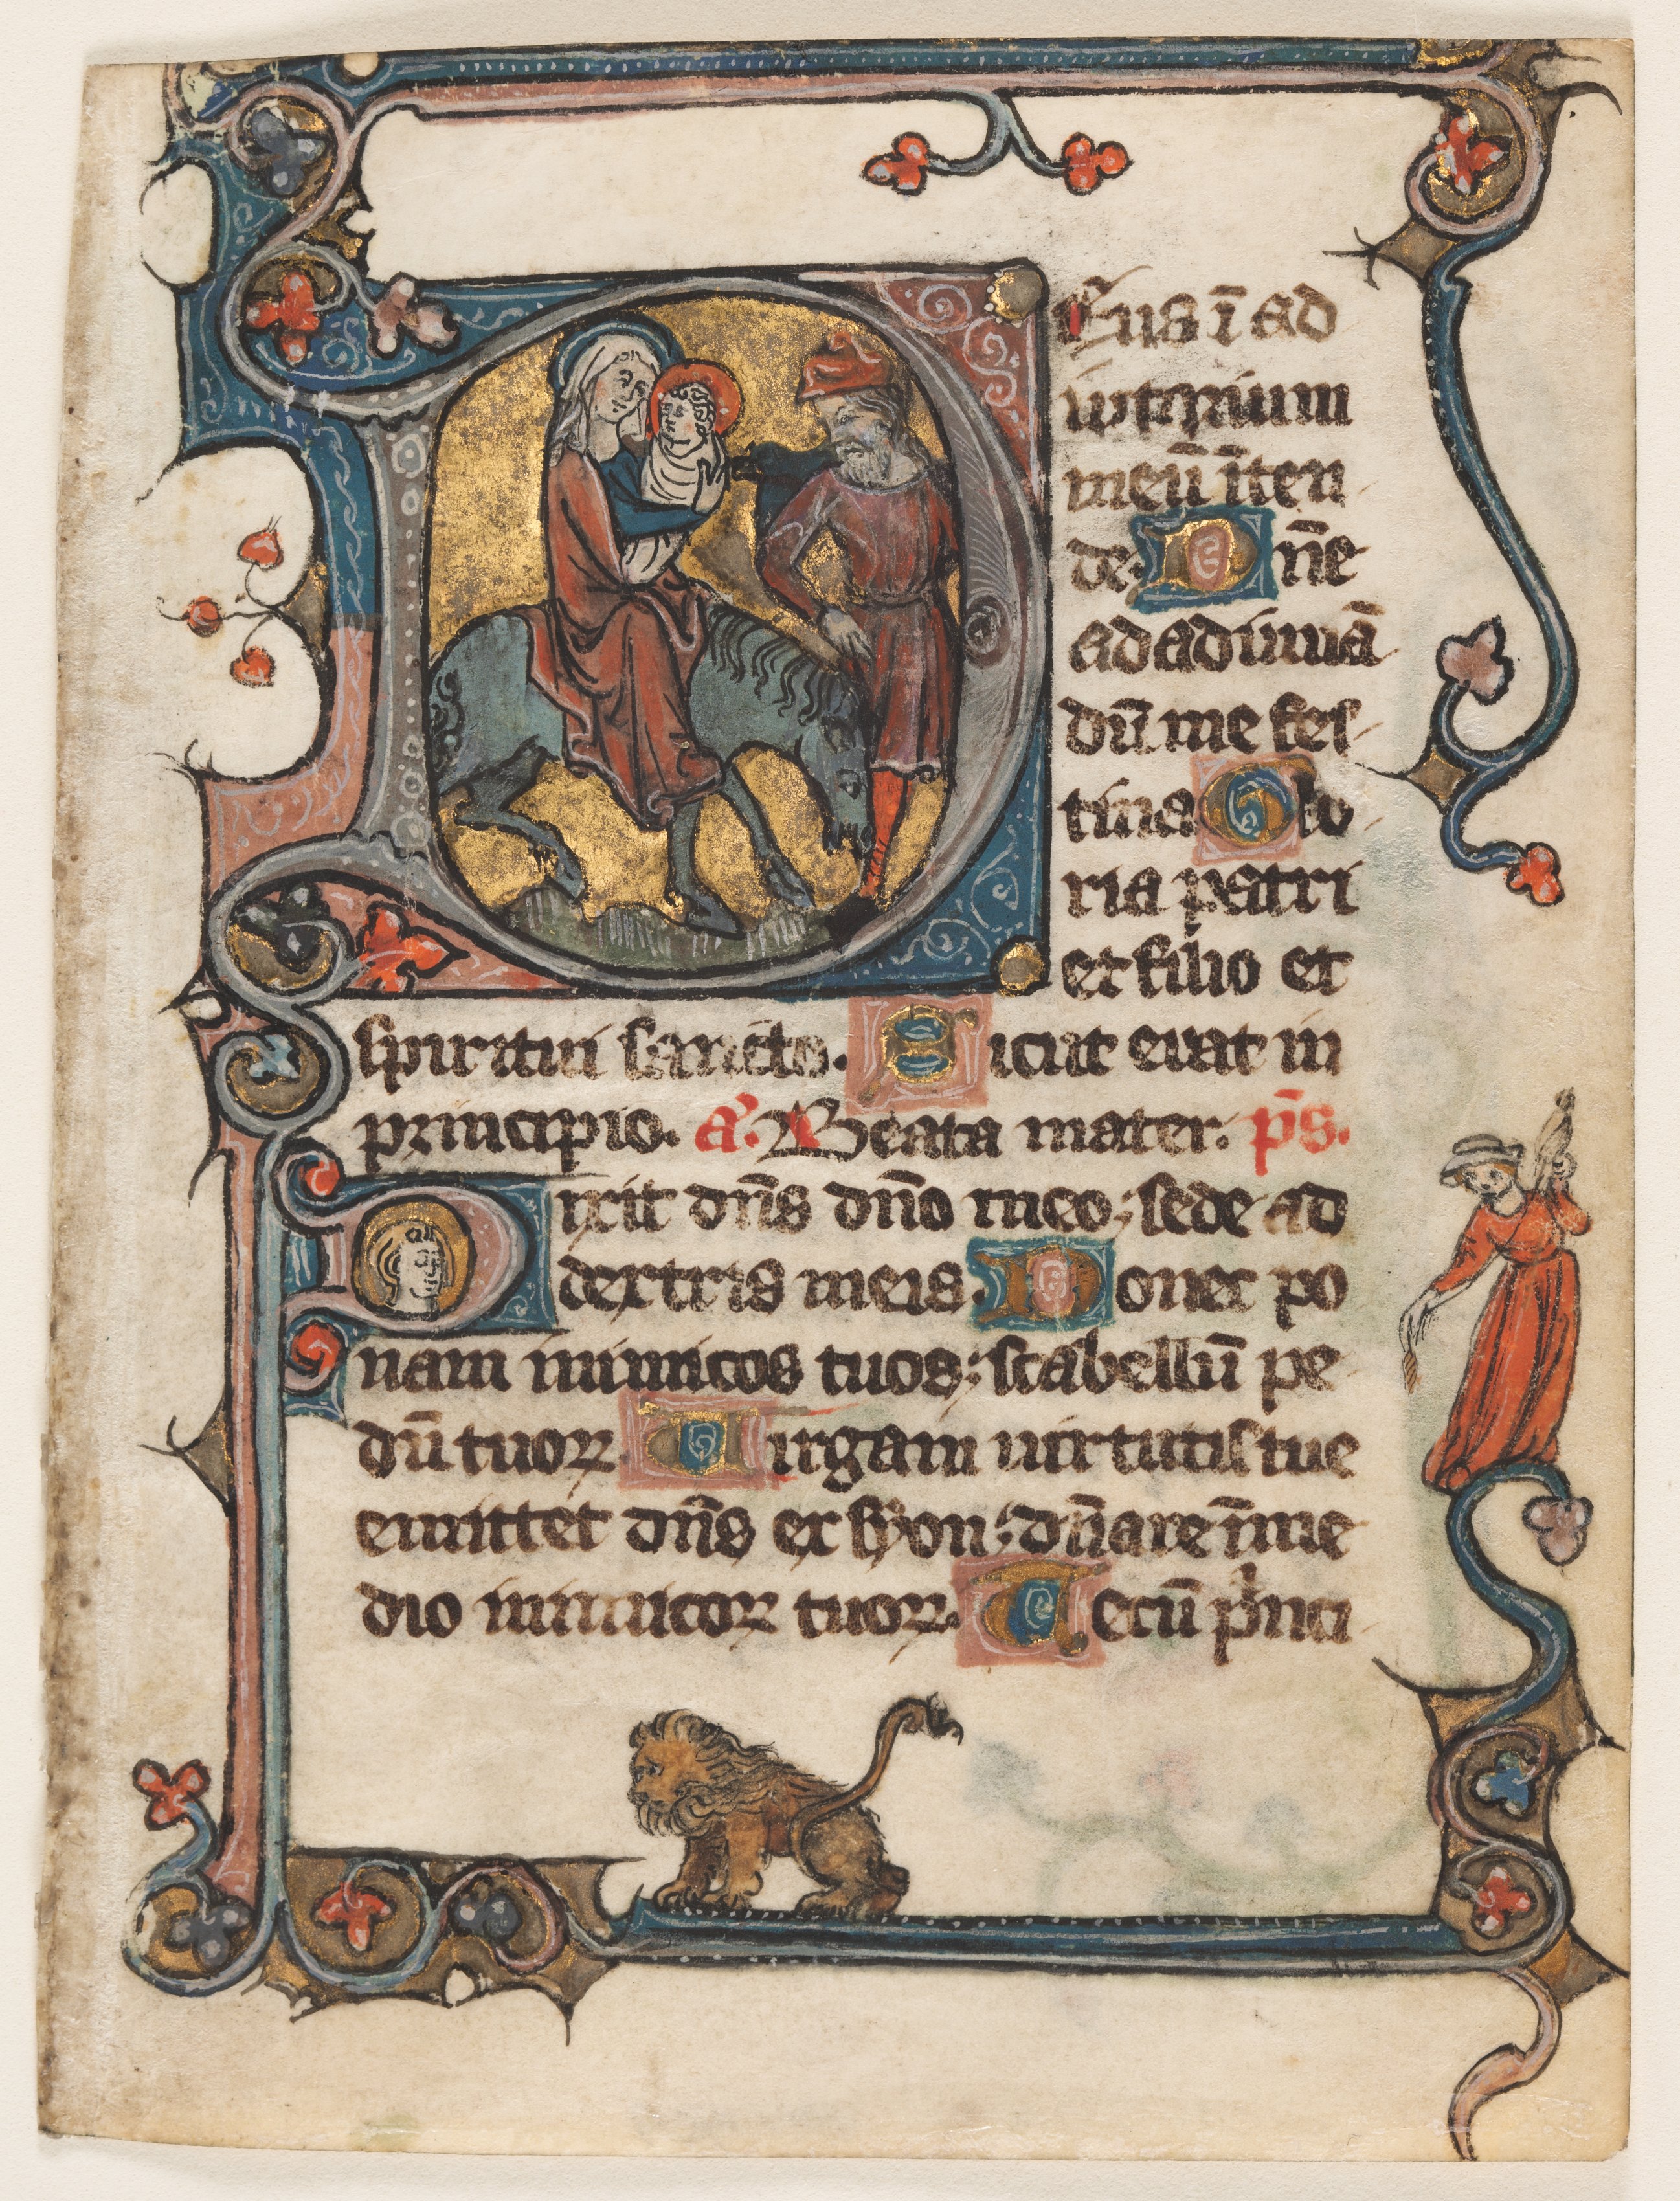 Deus ī ad
iutorium
meū īten
de. Dn̄e
ad adiuuā
dū me fes
tina Glo
ria patri
et filio et
spiritui sancto. Sicut erat in
principio. a̅. Beata mater. p̄s.
Dixit dn̄s dn̄o meo, sede ad
dextris meis. Donec po
nam inimicos tuos: scabellū pe
dū tuoꝝ Uirgam uirtutis tue
emittet dn̄s ex syon: dn̄are ī me
dio inimicoꝝ tuoꝝ. Tecū pͥnci